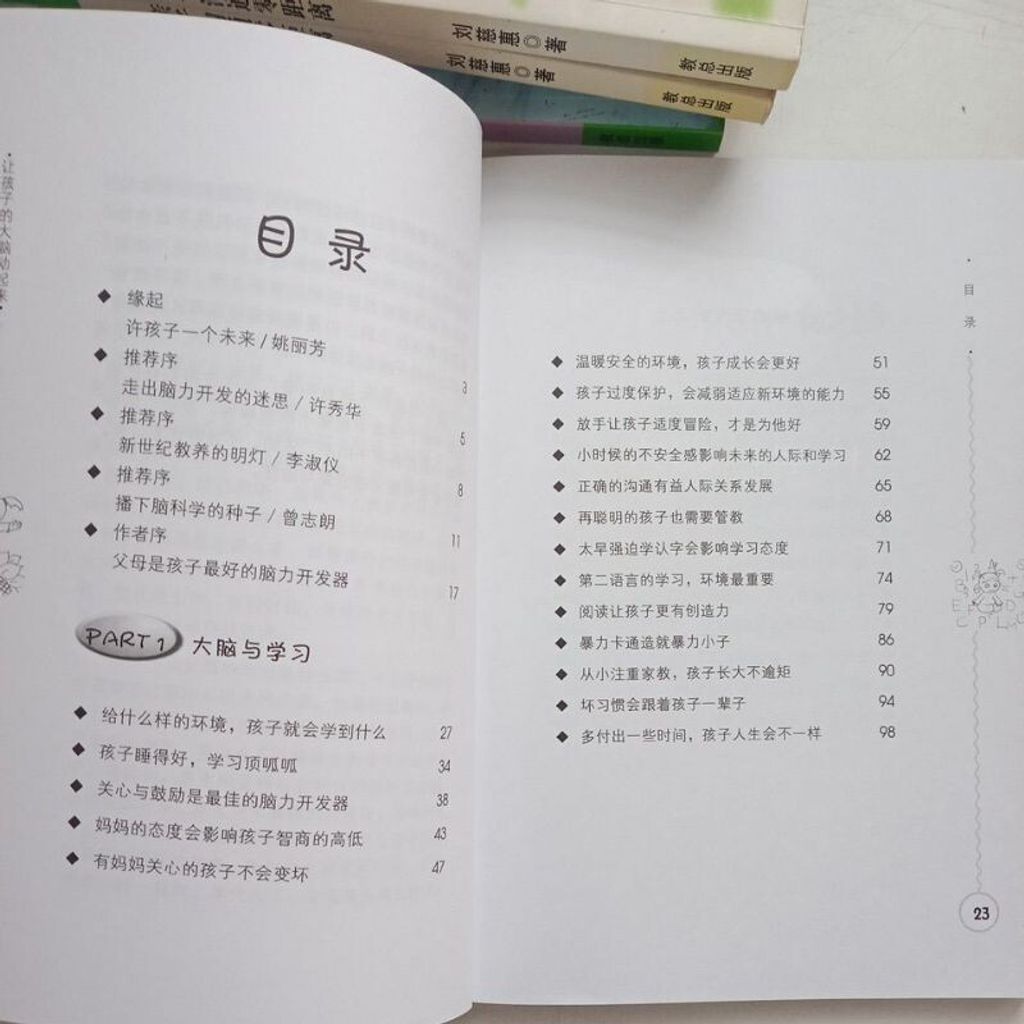 刘慈惠◎著
教总出版
刘慈惠◎著
教总出版
·让孩子的大脑动起来·
目录
◆ 缘起
许孩子一个未来/姚丽芳 3
◆ 推荐序
走出脑力开发的迷思/许秀华 5
◆ 推荐序
新世纪教养的明灯/李淑仪 8
◆ 推荐序
播下脑科学的种子/曾志朗 11
◆ 作者序
父母是孩子最好的脑力开发器 17
PART 1 大脑与学习
◆ 给什么样的环境，孩子就会学到什么 27
◆ 孩子睡得好，学习顶呱呱 34
◆ 关心与鼓励是最佳的脑力开发器 38
◆ 妈妈的态度会影响孩子智商的高低 43
◆ 有妈妈关心的孩子不会变坏 47
·目录·
◆ 温暖安全的环境，孩子成长会更好 51
◆ 孩子过度保护，会减弱适应新环境的能力 55
◆ 放手让孩子适度冒险，才是为他好 59
◆ 小时候的不安全感影响未来的人际和学习 62
◆ 正确的沟通有益人际关系发展 65
◆ 再聪明的孩子也需要管教 68
◆ 太早强迫学认字会影响学习态度 71
◆ 第二语言的学习，环境最重要 74
◆ 阅读让孩子更有创造力 79
◆ 暴力卡通造就暴力小子 86
◆ 从小注重家教，孩子长大不逾矩 90
◆ 坏习惯会跟着孩子一辈子 94
◆ 多付出一些时间，孩子人生会不一样 98
23